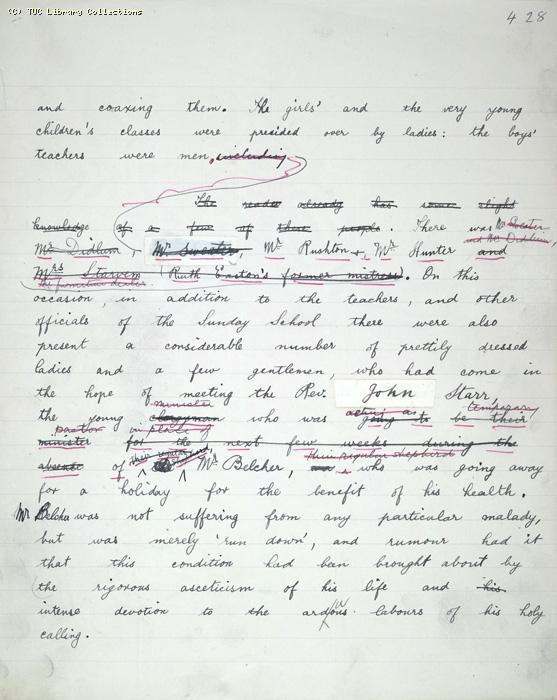 (C) TUC Library Collections
428
and coaxing them. The girls' and the very young
children's classes were presided over by ladies: the boys'
teachers were men, including
The reader already has some slight
knowledge of a few of these people. There was Mr Sweater
and Mr Didlum
Mr Didlum, Mr Sweater, Mr Rushton, Mr Hunter and
Mrs Starvem (Ruth Easton's former mistress. On this
occasion, in addition to the teachers, and other
officials of the Sunday School there were also
present a considerable number of prettily dressed
ladies and a few gentlemen, who had come in
the hope of meeting the Rev. John Starr,
minister acting as temporary
the young clergyman who was going to be their
pastor in place of
minister for the next few weeks during the
their regular shepherd
absence of Mr Belcher, who was going away
for a holiday for the benefit of his health.
Mr Belcher was not suffering from any particular malady,
but was merely 'run down', and rumour had it
that this condition had been brought about by
the rigorous asceticism of his life and his
intense devotion to the arduous labours of his holy
calling.